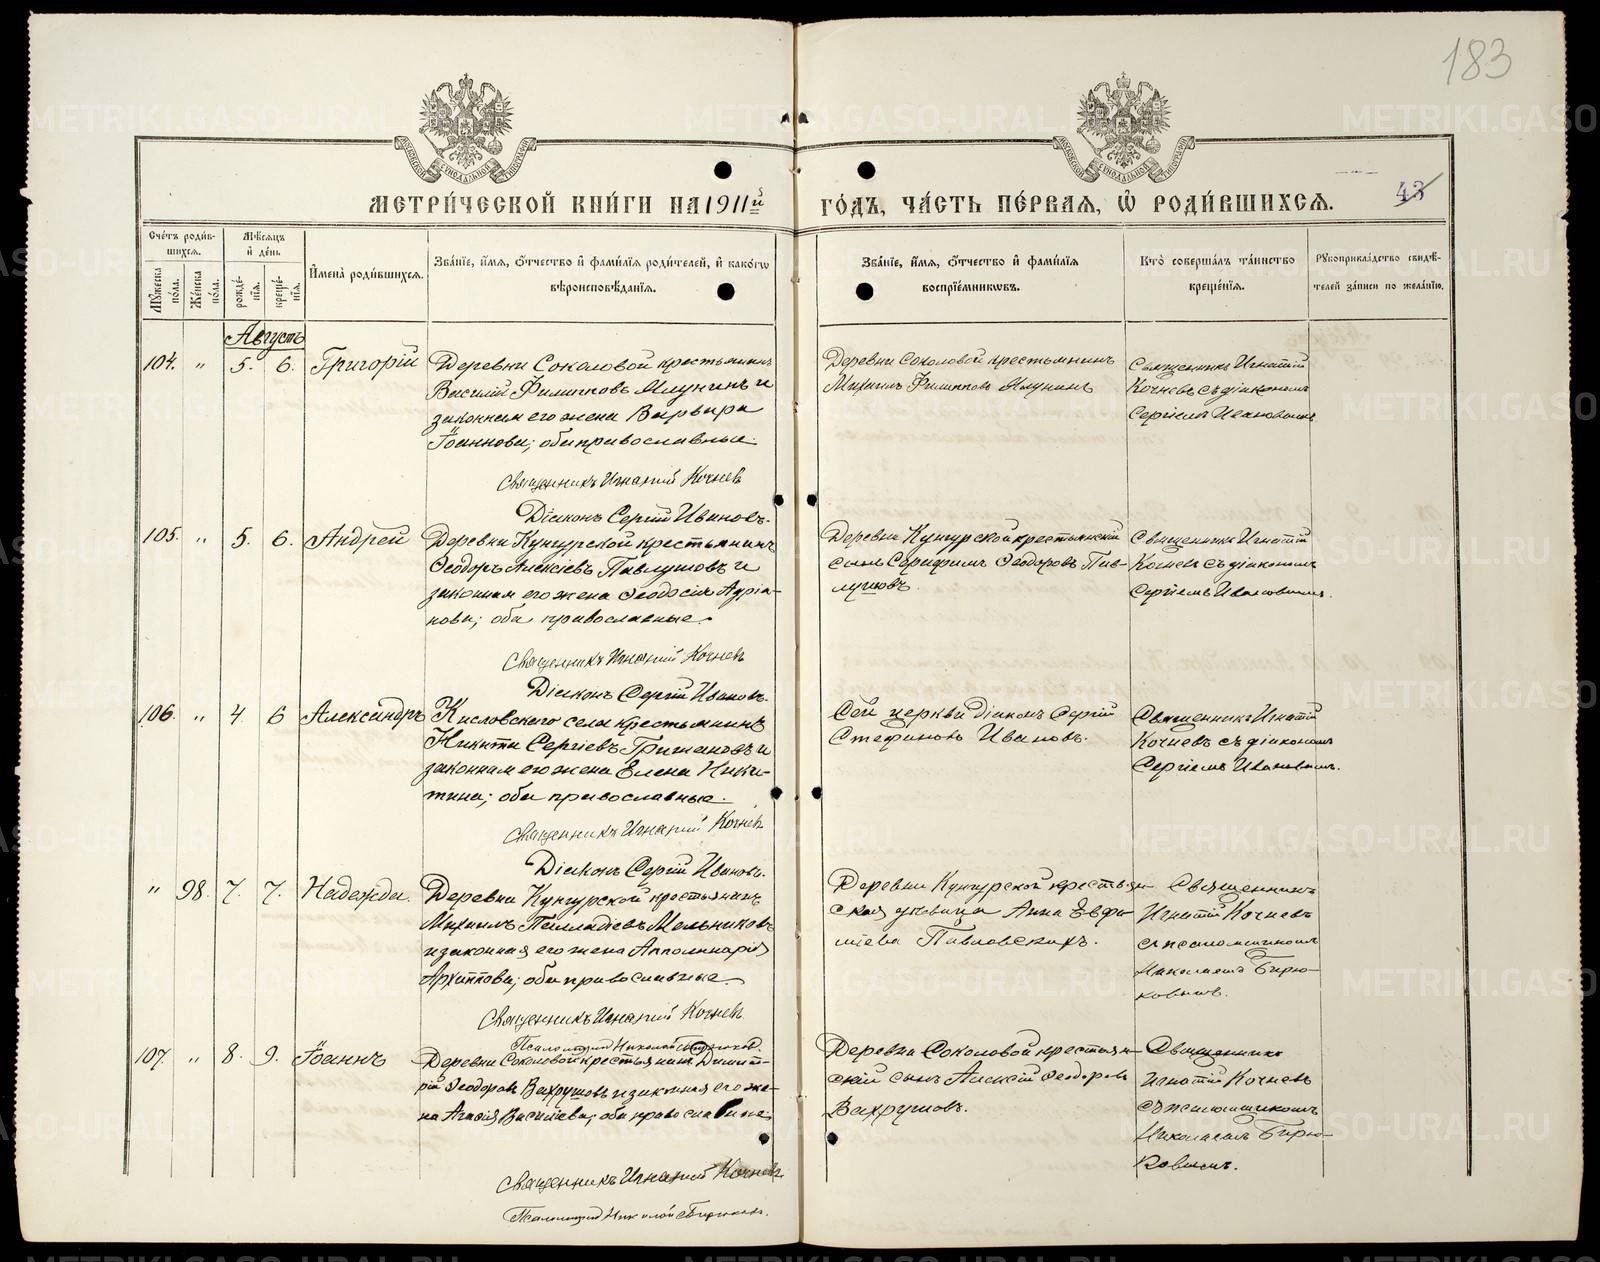 183
МЕТРИЧЕСКОЙ КНИГИ НА 1911й ГОДЪ, ЧАСТЬ ПЕРВАЯ, Ѡ РОДИВШИХСЯ.
43
Счетъ родив-
шихся.
Мѣсяцъ
и день
Мужеска
пола.
Женска
пола.
рожде-
нія.
креще-
нія.
Имена родившихся.
Званіе, имя, отчество и фамилія родителей, и какогѡ
вѣроисповѣданія.
Званіе, имя, отчество и фамилія
воспріемникѡвъ.
Кто совершалъ таинство
крещенія.
Рукоприкладство свидѣ-
телей записи по желанію.
Августъ
104. „ 5. 6. Григорій
Деревни Соколовой крестьянинъ
Василій Филипповъ Ялунинъ и
законная его жена Варвара
Іоаннова; оба православные.
Священникъ Игнатій Кочневъ
Діаконъ Сергій Ивановъ.
Деревни Соколовой крестьянинъ
Михаилъ Филипповъ Ялунинъ
Священникъ Игнатій
Кочневъ съ діакономъ
Сергіемъ Ивановымъ
105. „ 5. 6. Андрей
Деревни Кунгурской крестьянинъ
Ѳеодоръ Алексіевъ Павлушовъ и
законная его жена Ѳеодосія Адріа-
нова; оба православные.
Священникъ Игнатій Кочневъ
Діаконъ Сергій Ивановъ.
Деревни Кунгурской крестьянскій
сынъ Серафимъ Ѳеодоровъ Пав-
лушовъ.
Священникъ Игнатій
Кочневъ съ діакономъ
Сергіемъ Ивановымъ.
106. „ 4. 6 Александръ
Кисловскаго села крестьянинъ
Никита Сергіевъ и
законная его жена Елена Ники-
тина; оба православные.
Священникъ Игнатій Кочневъ
Діаконъ Сергій Ивановъ.
Сей церкви діаконъ Сергій
Стефановъ Ивановъ.
Священникъ Игнатій
Кочневъ съ діакономъ
Сергіемъ Ивановымъ.
„ 98. 7. 7. Надежда.
Деревни Кунгурской крестьянинъ
Михаилъ Палладіевъ Мельниковъ
и законная его жена Апполинарія
Архиппова; оба православные.
Священникъ Игнатій Кочневъ
Псаломщикъ Николай Бирюковъ.
Деревни Кунгурской крестьян-
ская дѣвица Анна Евфи-
міева Павловскихъ.
Священникъ
Игнатій Кочневъ
съ псаломщикомъ
Николаемъ Бирю-
ковымъ.
107. „ 8. 9. Іоаннъ
Деревни Соколовой крестьянинъ Димит-
рій Ѳеодоровъ Вахрушовъ и законная его же-
на Агафія Васильева; оба православные
Священникъ Игнатій Кочневъ
Псаломщикъ Николай Бирюковъ.
Деревни Соколовой крестьян-
скій сынъ Алексій Ѳеодоровъ
Вахрушовъ.
Священникъ
Игнатій Кочневъ
съ псаломщикомъ
Николаемъ Бирю-
ковымъ.
METRIKI.GASO-URAL.RU